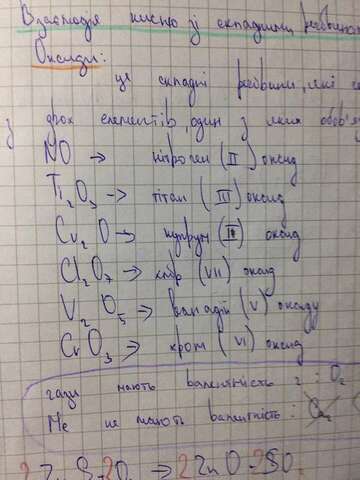 Взаємодія кисню зі складними речовинами
Оксиди:
це складні речовини, які
з двох елементів, один з яких
NO → нітроген (II) оксид
Ti₂O₃ → тітан (III) оксид
Cu₂O → купрум (I) оксид
Cl₂O₇ → хлор (VII) оксид
V₂O₅ → ванадій (V) оксиду
CrO₃ → хром (VI) оксид
гази мають валентність 2 : O₂
Ме не мають валентність :
ZnS 2O → 2ZnO 2SO